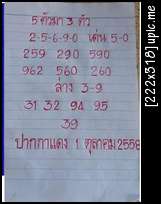 5 ตัวมา 3 ตัว
2-5-6-9-0 เด่น 5-0
259 290 590
962 560 260
ล่าง 3-9
31 32 94 95
39
ปากกาแดง 1 ตุลาคม 2558
[222x318] upic.me